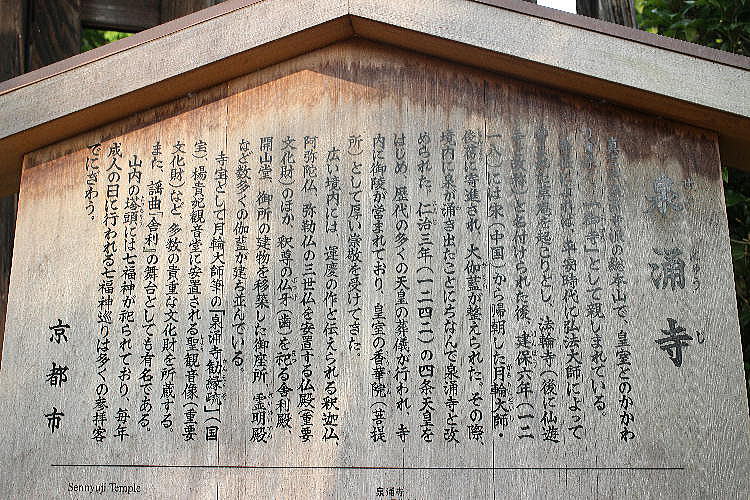 泉涌寺
せんにゅうじ
の総本山で、皇室とのかかわ
寺」として親しまれている。
平安時代に弘法大師によって
起こりとし、法輪寺（後に仙遊
寺と改称）と名付けられた後、建保六年（一二
一八）には宋（中国）から帰朝した月輪大師・
俊芿に寄進され、大伽藍が整えられた。その際、
境内に泉が涌き出たことにちなんで泉涌寺と改
められた。仁治三年（一二四二）の四条天皇を
はじめ、歴代の多くの天皇の葬儀が行われ、寺
内に御陵が営まれており、皇室の香華院（菩提
所）として厚い崇敬を受けてきた。
広い境内には、運慶の作と伝えられる釈迦仏、
阿弥陀仏、弥勒仏の三世仏を安置する仏殿（重要
文化財）のほか、釈尊の仏牙（歯）を祀る舎利殿、
開山堂、御所の建物を移築した御座所、霊明殿
など数多くの伽藍が建ち並んでいる。
寺宝として月輪大師筆の「泉涌寺勧縁疏」（国
宝）、楊貴妃観音堂に安置される聖観音像（重要
文化財）など、多数の貴重な文化財を所蔵する。
また、謡曲「舎利」の舞台としても有名である。
山内の塔頭には七福神が祀られており、毎年
成人の日に行われる七福神巡りは多くの参拝客
でにぎわう。
京都市
Sennyuji Temple
泉涌寺